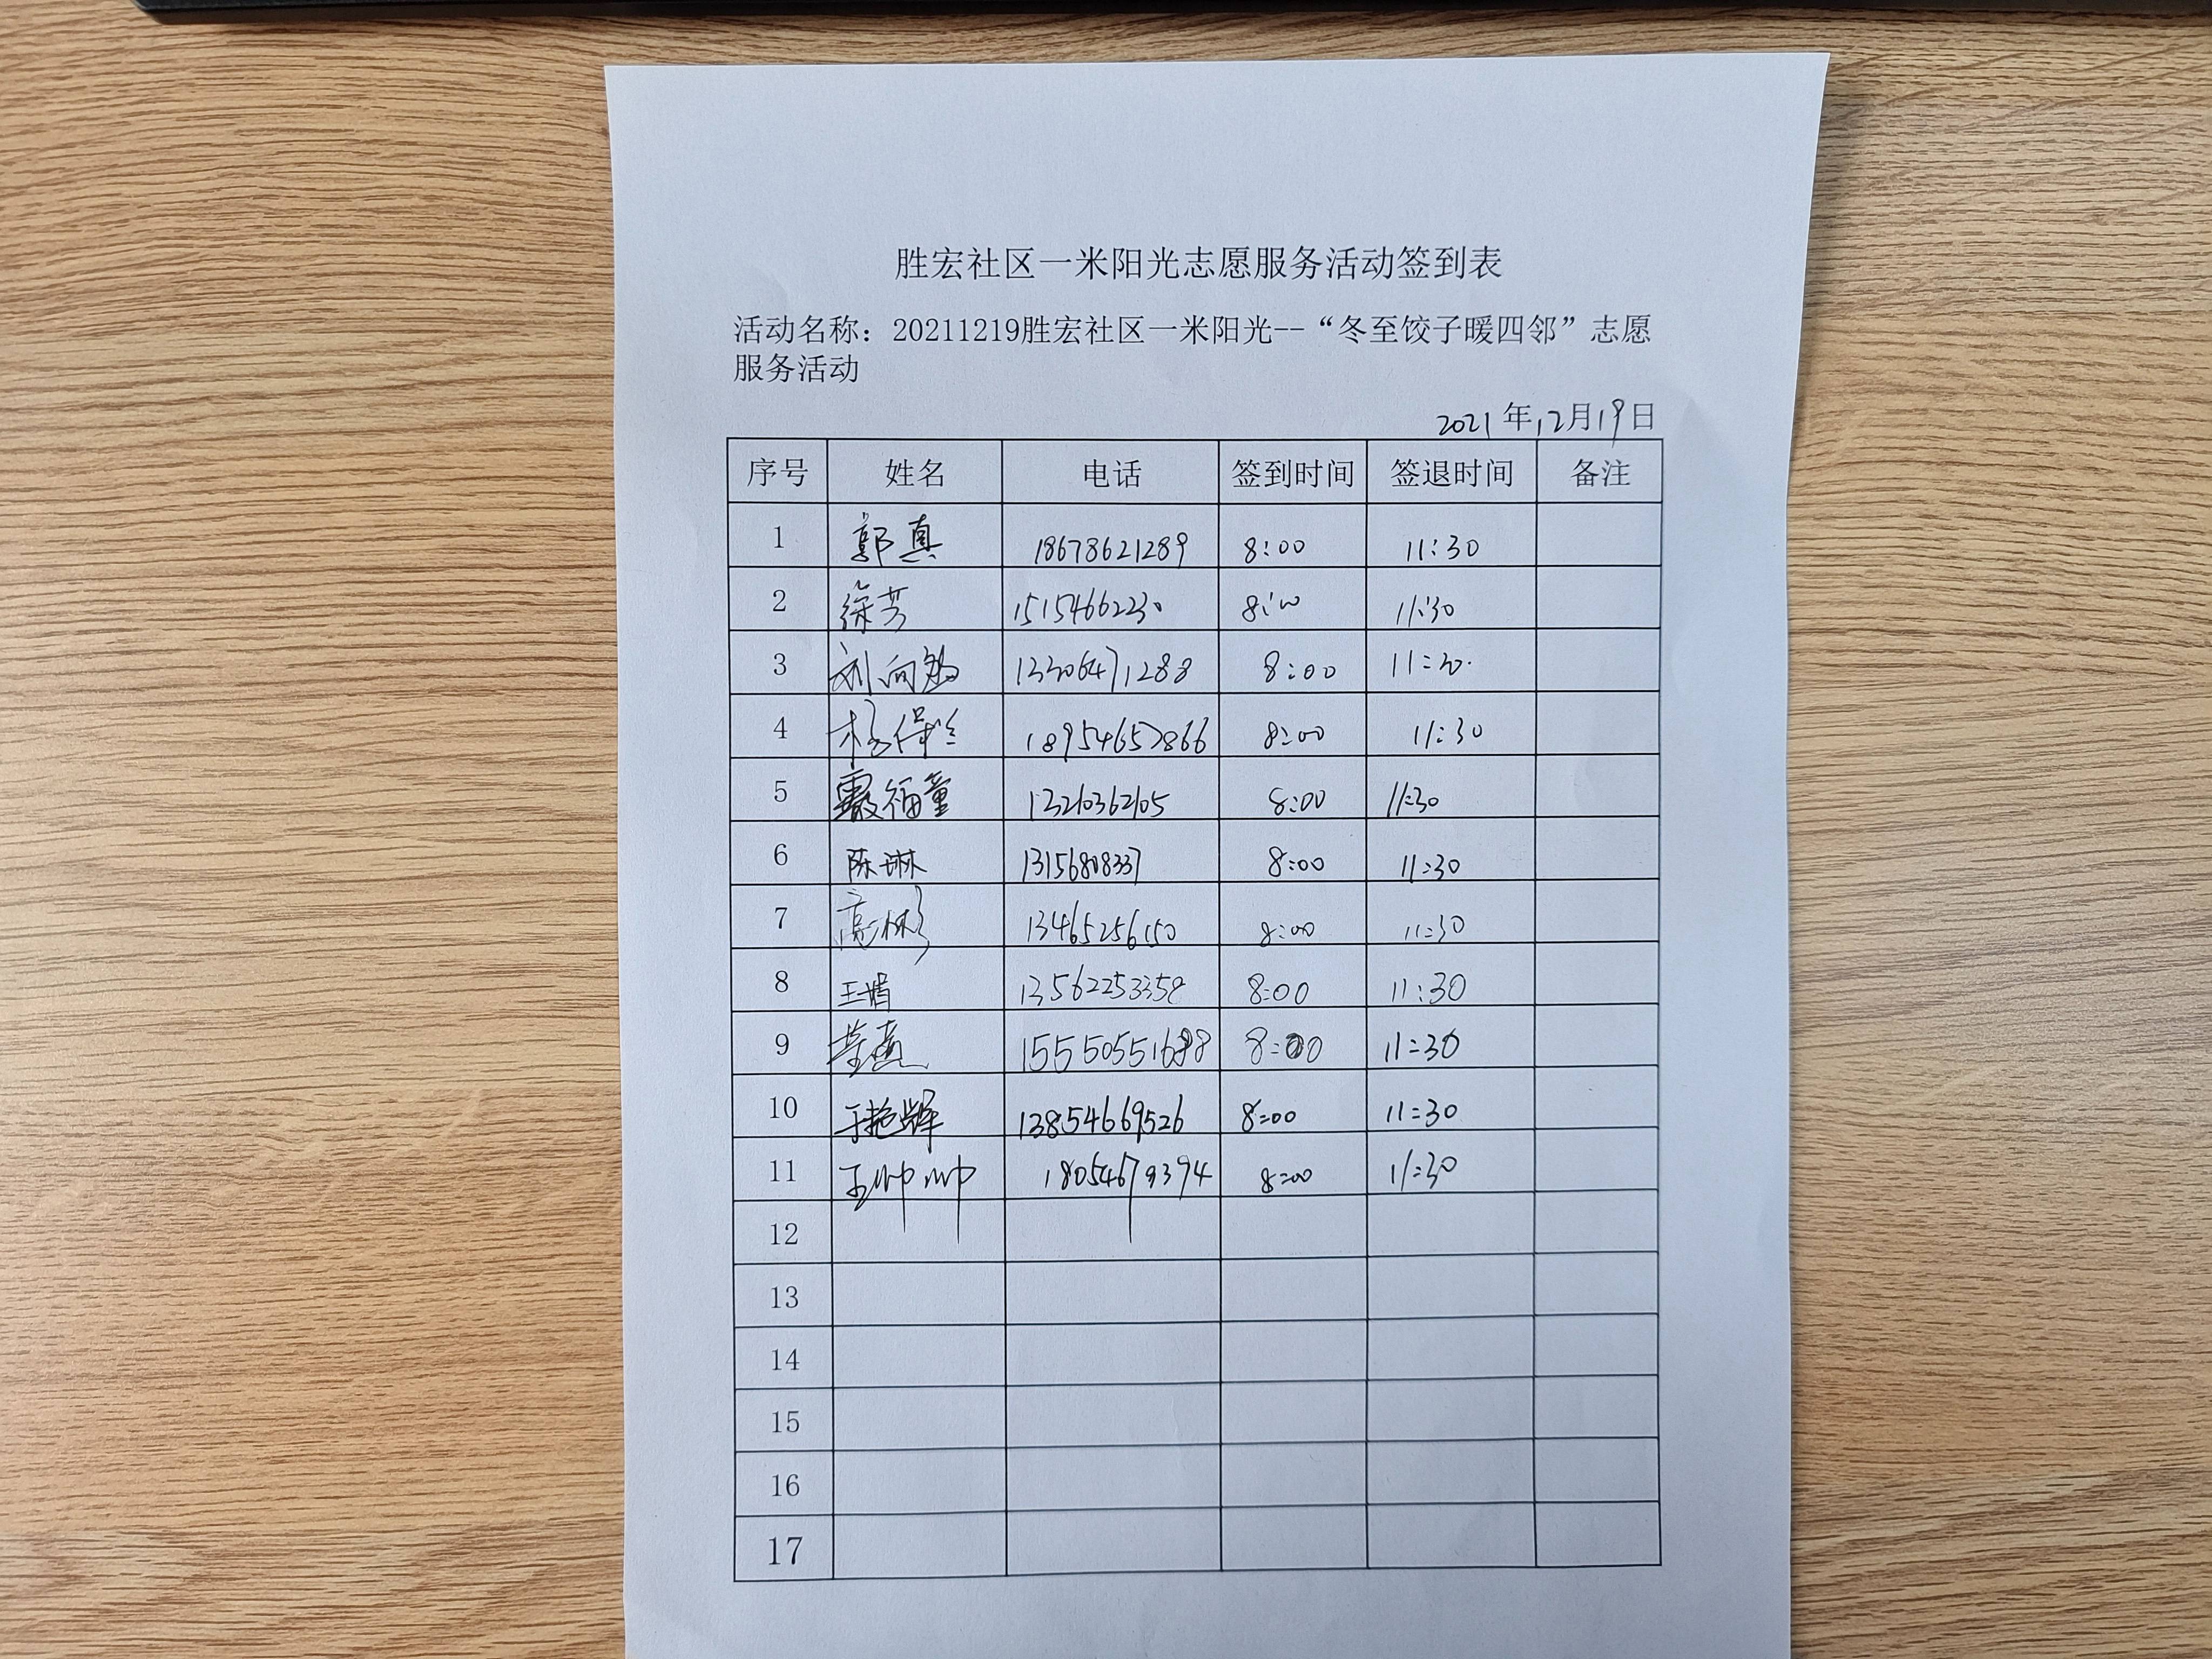 胜宏社区一米阳光志愿服务活动签到表
活动名称：20211219胜宏社区一米阳光--“冬至饺子暖四邻”志愿
服务活动
2021年12月19日
序号 姓名 电话 签到时间 签退时间 备注
1 郭真 18678621289 8:00 11:30
2 徐芳 15154662230 8:00 11:30
3 刘向 13306471288 8:00 11:30
4 杨保 8:00 11:30
5 福童 13210362105 8:00 11:30
6 陈琳 8:00 11:30
7 高 13465256150 8:00 11:30
8 王婧 13562253358 8:00 11:30
9 8:00 11:30
10 于艳辉 13854669526 8:00 11:30
11 王帅帅 18054679394 8:00 11:30
12
13
14
15
16
17